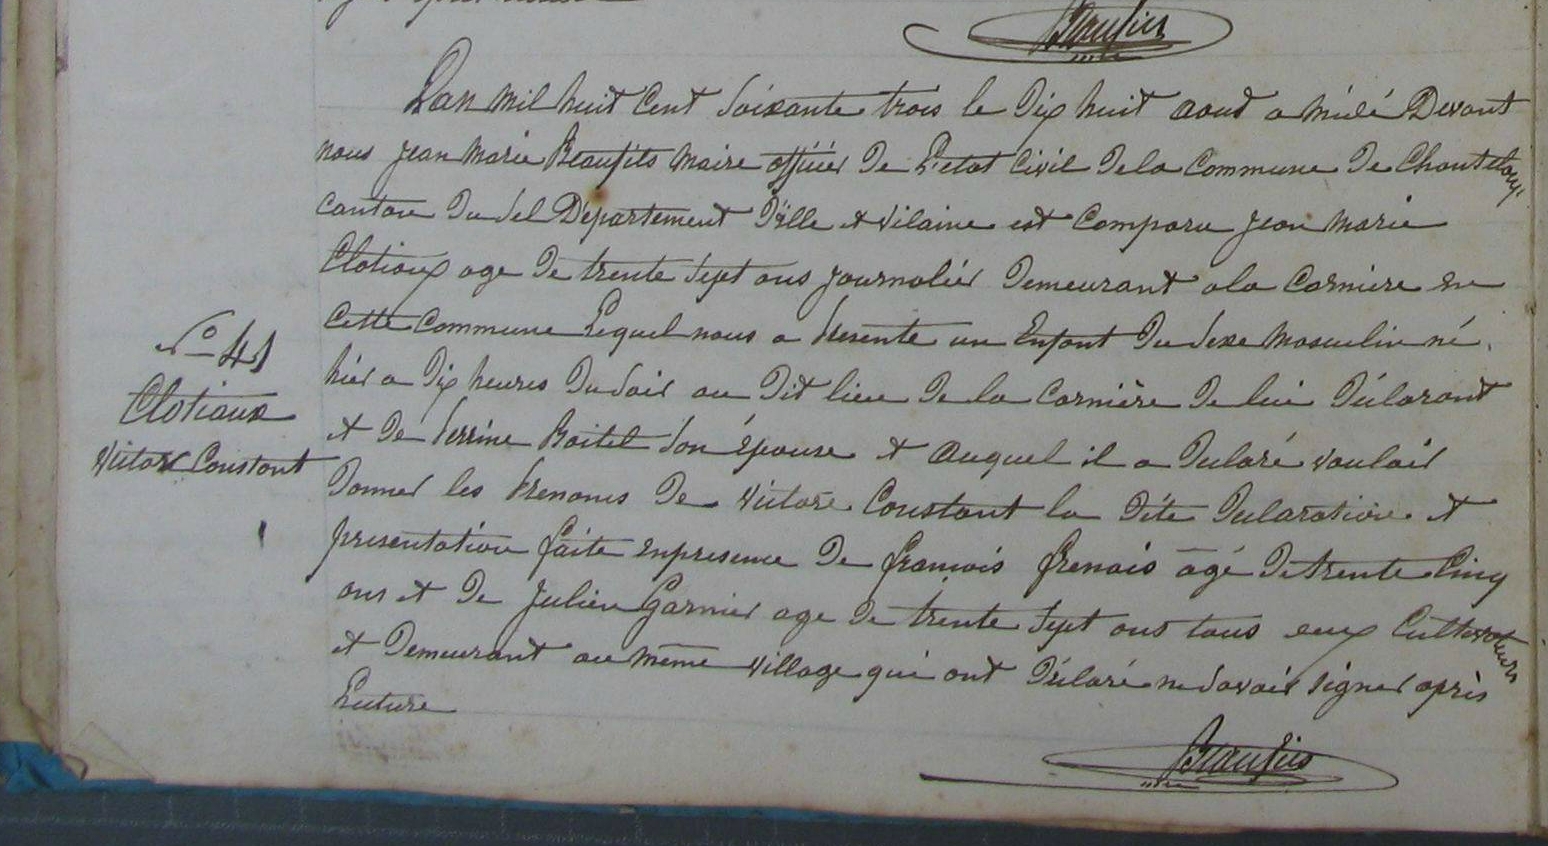 Lan mil huit Cent Soixante trois le Dix huit aout a midi Devant
nous jean marie Beaufils maire officier De L'etat Civil De la Commune De Chanteloup
canton Du Sel Département D'ille et Vilaine est Comparu jean marie
Clotiaux age De trente Sept ans journalier Demeurant a la Cornière en
Cette Commune Lequel nous a presenté un Enfant Du Sexe masculin né
hier a Dix heures Du Soir au Dit lieu De la Cornière De lui Déclarant
N° 41
Clotiaux
Victor Constant
et De perrine Boitel Son épouse et auquel il a Déclaré vouloir
Donner les prenoms De Victor Constant la Dite Declaration et
presentation faite en presence De françois frenais agé De trente Cinq
ans et De julien Garnier age De trente Sept ans tous eux Cultivateurs
et Demeurant au même village qui ont Déclaré ne Savoir Signer après
Lecture
Beaufils